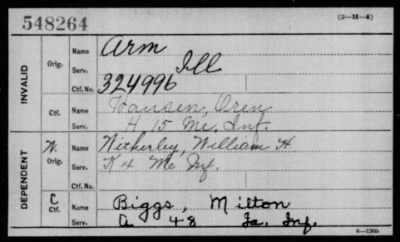 548264 (3-16-4)
INVALID
Orig. Name Arm
Serv. Ill
Ctf. No. 324996
Ctf. Name Hansen, Oren
Serv. H 15 Me. Inf.
DEPENDENT
W. Orig. Name Witherley, William H
Serv. K 4 Me Inf.
C Ctf. Name Biggs, Milton
Serv. A 48 Ia. Inf.